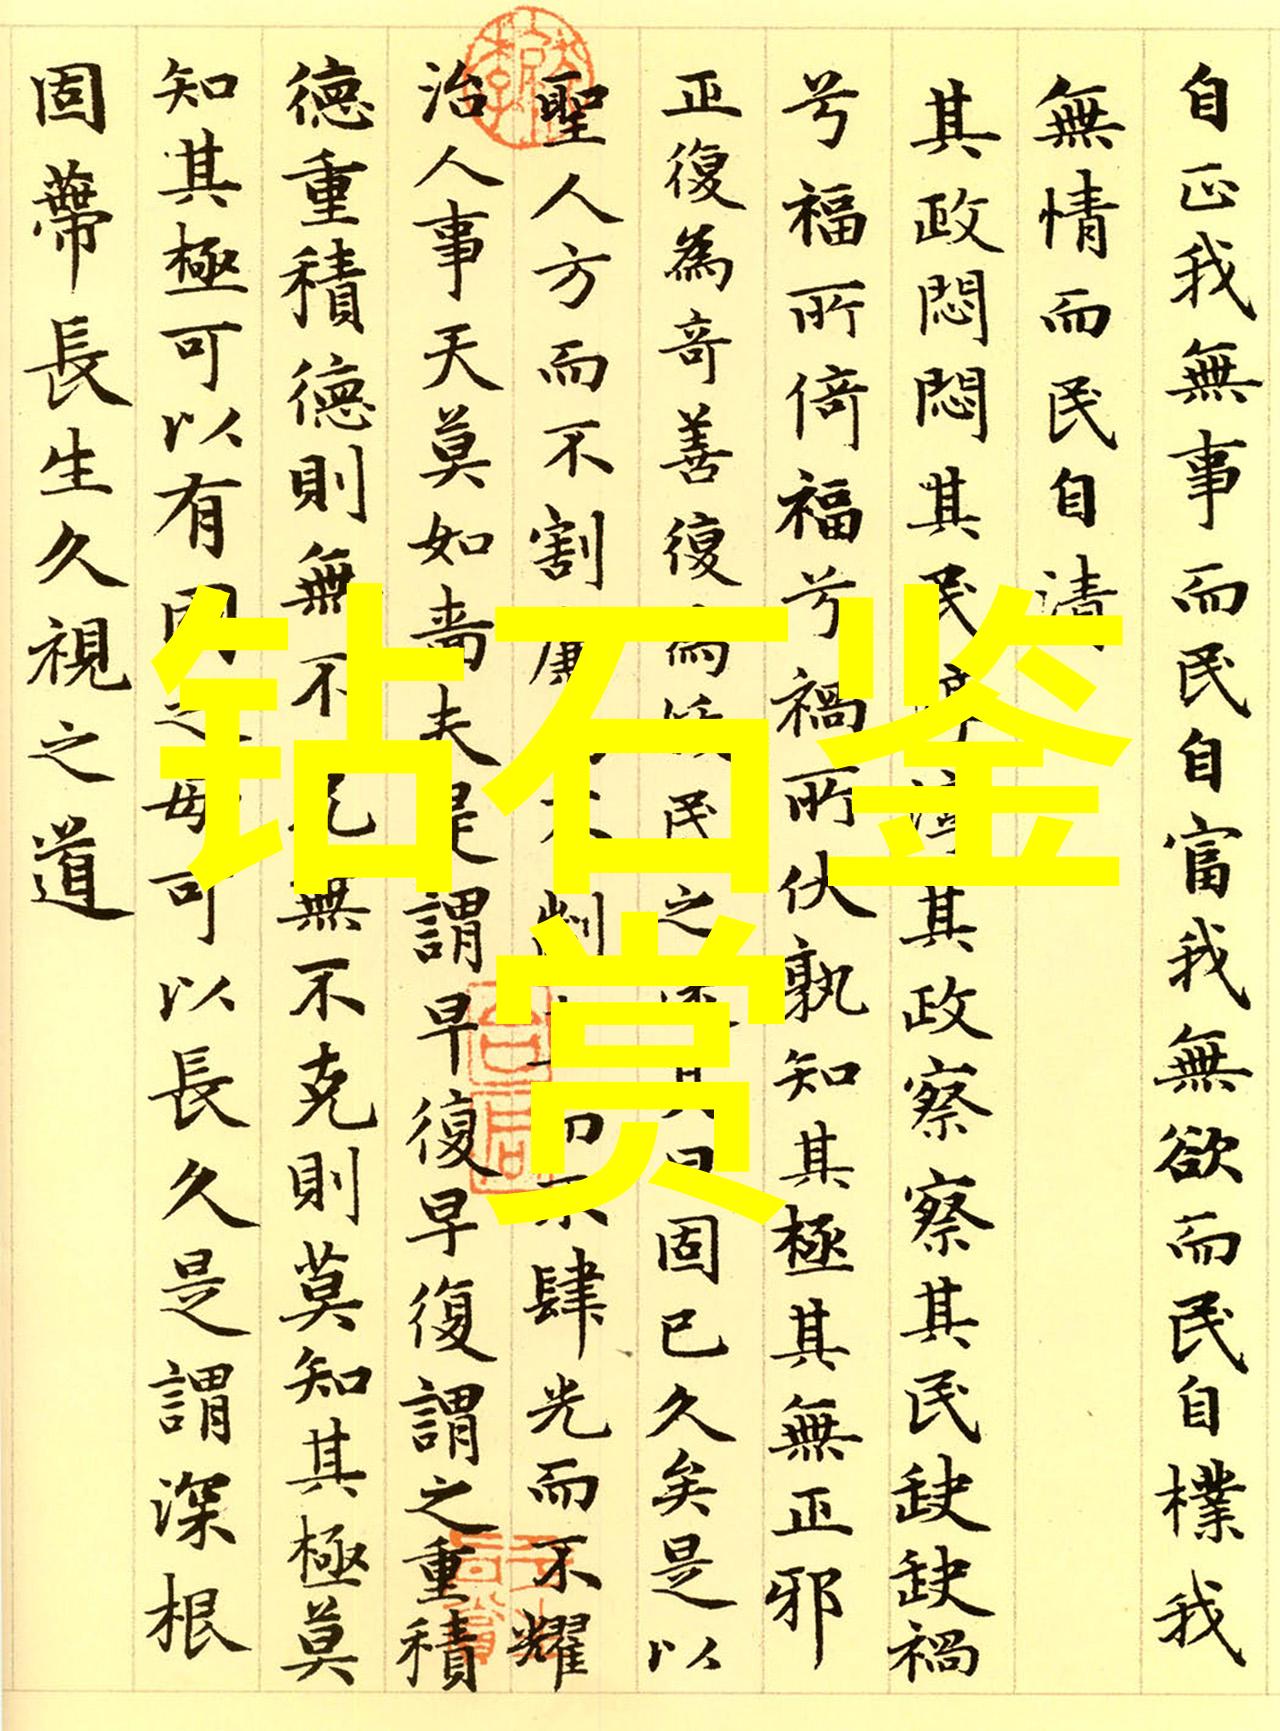 自正我無事而民自富我無欲而民自樸我
無情而民自清
其政悶悶其民其政察察其民缺缺禍
兮福所倚福兮禍所伏孰知其極其無正邪
正復為奇善復為民之其日固已久矣是以
聖人方而不割而不肆光而不耀
治人事天莫如嗇夫是謂早復早復謂之重積
德重積德則無不克無不克則莫知其極莫
知其極可以有國之母可以長久是謂深根
固蔕長生久視之道
钻石鉴
赏